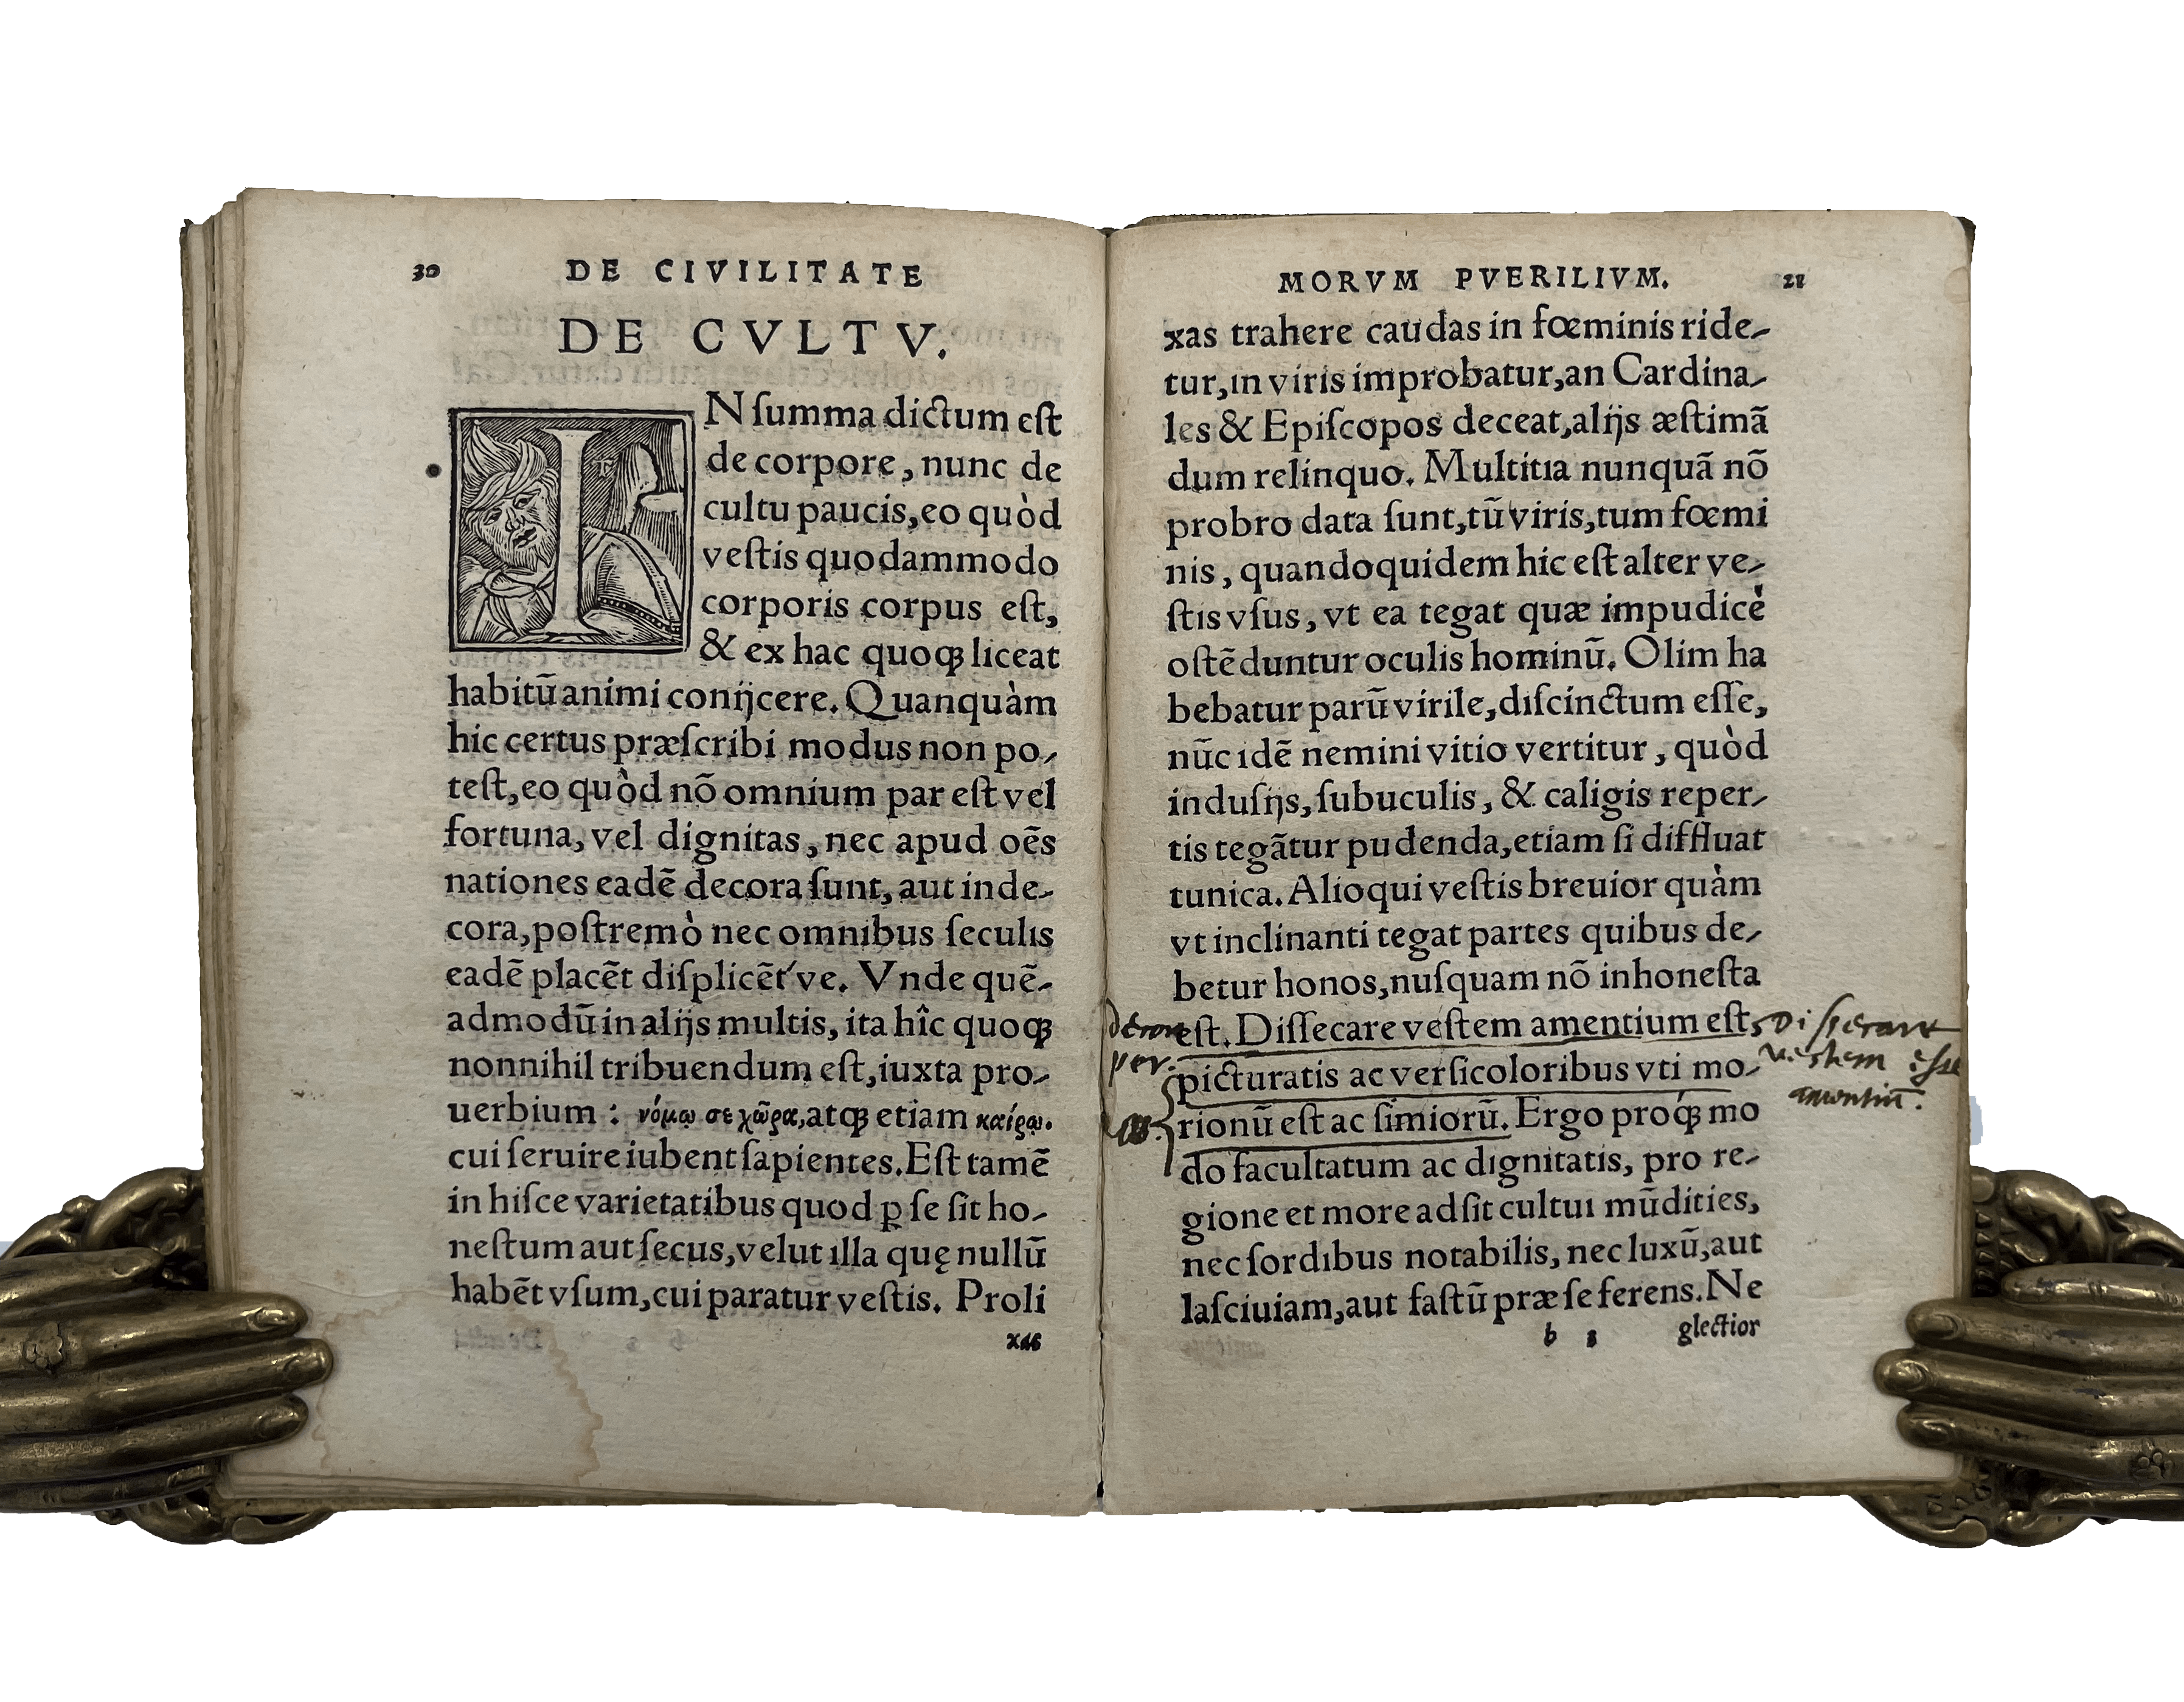 30 DE CIVILITATE
DE CVLTV.
IN ſumma dictum eſt
de corpore, nunc de
cultu paucis, eo quòd
veſtis quodammodo
corporis corpus eſt,
& ex hac quoqꝫ liceat
habitũ animi conijcere. Quanquàm
hic certus præſcribi modus non po-
teſt, eo quòd nõ omnium par eſt vel
fortuna, vel dignitas, nec apud oẽs
nationes eadẽ decora ſunt, aut inde-
cora, poſtremò nec omnibus ſeculis
eadẽ placẽt diſplicẽt've. Vnde quẽ-
admodũ in alijs multis, ita hîc quoqꝫ
nonnihil tribuendum eſt, iuxta pro-
uerbium: νόμῳ σε χῶρα, atqꝫ etiam καίρῳ.
cui ſeruire iubent ſapientes. Eſt tamẽ
in hiſce varietatibus quod ꝑ ſe ſit ho-
neſtum aut ſecus, velut illa quę nullũ
habẽt vſum, cui paratur veſtis. Proli
xas
MORVM PVERILIVM. 21
xas trahere caudas in fœminis ride-
tur, in viris improbatur, an Cardina-
les & Epiſcopos deceat, alijs æſtimã
dum relinquo. Multitia nunquã nõ
probro data ſunt, tũ viris, tum fœmi
nis, quandoquidem hic eſt alter ve-
ſtis vſus, vt ea tegat quæ impudicè
oſtẽduntur oculis hominũ. Olim ha
bebatur parũ virile, diſcinctum eſſe,
nũc idẽ nemini vitio vertitur, quòd
induſijs, ſubuculis, & caligis reper-
tis tegãtur pudenda, etiam ſi diffluat
tunica. Alioqui veſtis breuior quàm
vt inclinanti tegat partes quibus de-
betur honos, nuſquam nõ inhoneſta
eſt. Diſſecare veſtem amentium eſt,
picturatis ac verſicoloribus vti mo-
rionũ eſt ac ſimiorũ. Ergo pro qꝫ mo
do facultatum ac dignitatis, pro re-
gione et more adſit cultui mũdities,
nec ſordibus notabilis, nec luxũ, aut
laſciuiam, aut faſtũ præ ſe ferens. Ne
b 3 glectior
veſtem eſſe
amentiũ.